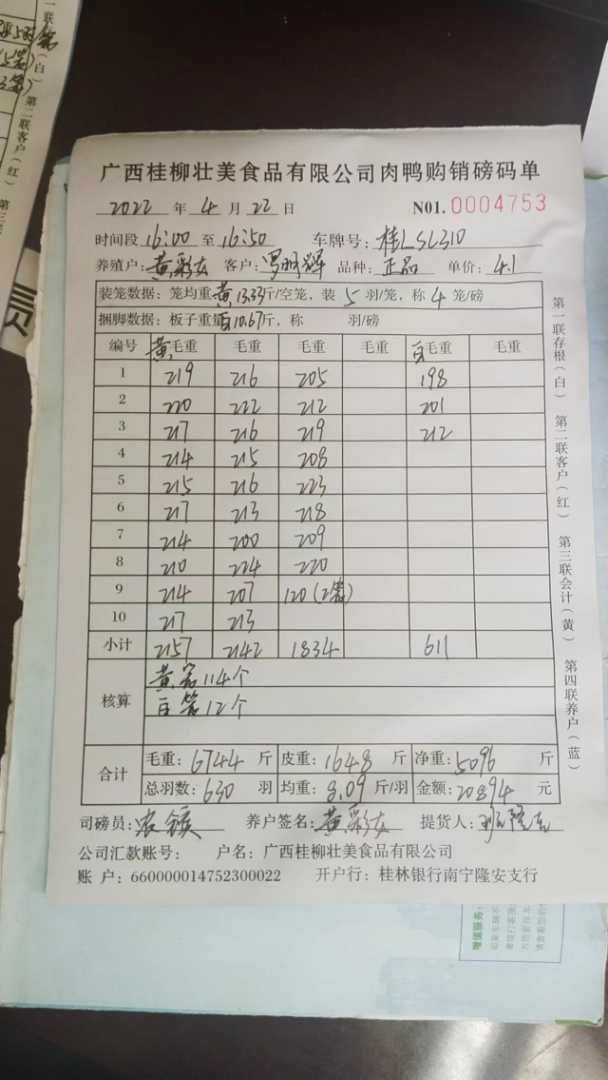 广西桂柳壮美食品有限公司肉鸭购销磅码单
2022 年 4 月 22 日 NO1.0004753
时间段 16:00 至 16:50 车牌号: 桂LSL310
养殖户: 黄彩 客户: 罗 辉 品种: 正品 单价: 4.1
装笼数据: 笼均重 黄13.33斤/空笼, 装 5 羽/笼, 称 4 笼/磅
捆脚数据: 板子重量 白10.67斤, 称 羽/磅
编号 黄毛重 毛重 毛重 毛重 白毛重 毛重
1 219 216 205 198
2 220 222 212 201
3 217 216 219 212
4 214 215 208
5 215 216 223
6 217 213 218
7 214 200 209
8 210 224 220
9 214 207 120(2笼)
10 217 213
小计 2157 2142 1834 611
核算 黄笼114个
白笼12个
合计 毛重: 6744 斤 皮重: 1648 斤 净重: 5096 斤
总羽数: 630 羽 均重: 8.09 斤/羽 金额: 20894 元
司磅员: 农 养户签名: 黄彩 提货人:
公司汇款账号: 户名: 广西桂柳壮美食品有限公司
账 户: 660000014752300022 开户行: 桂林银行南宁隆安支行
第一联存根(白) 第二联客户(红) 第三联会计(黄) 第四联养户(蓝)
(白) 第二联客户(红) 第三
增值服务: